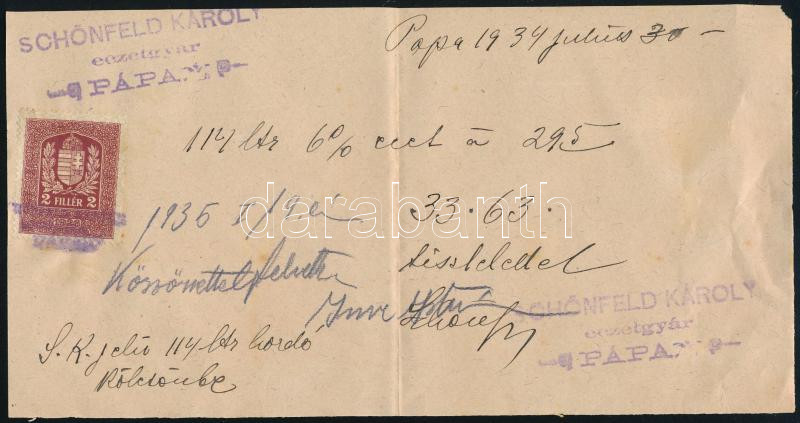 SCHÖNFELD KÁROLY
eczetgyár
PÁPA
Papa 1934 julius 30 -
114 ltr 6% ecet á 295
2 FILLÉR 2
1935 I/19 én
33.63.
Köszönettel felvette
tisztelettel
Imre
SCHÖNFELD KÁROLY
eczetgyár
PÁPA
S. K. jelü 114 ltr hordó
kölcsönbe
darabanth